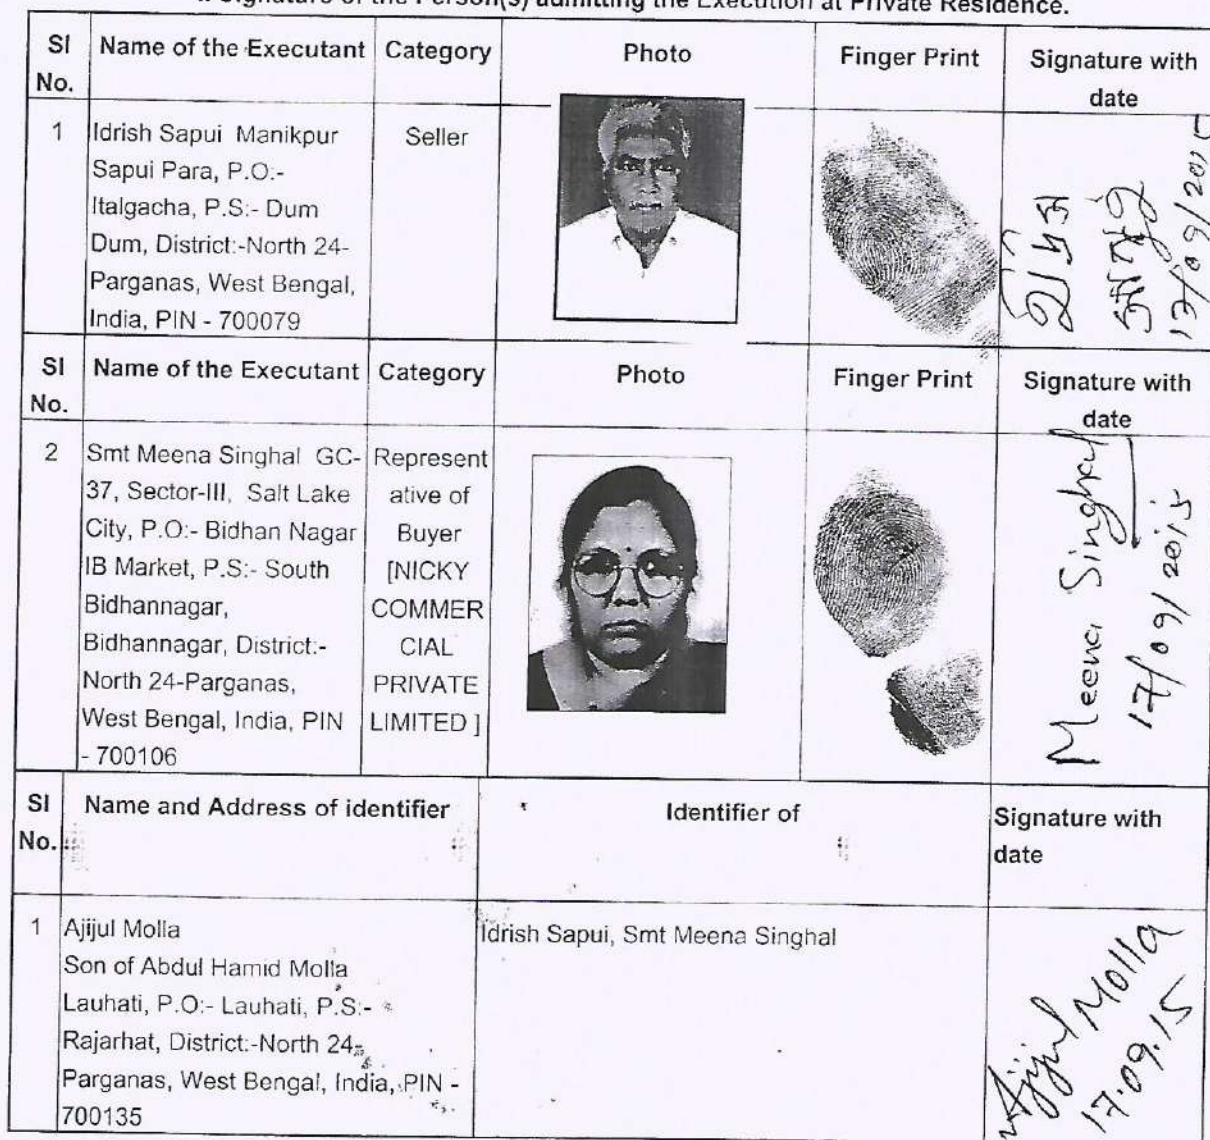 Signature of the Person(s) admitting the Execution at Private Residence.
Sl No. Name of the Executant Category Photo Finger Print Signature with date
1 Idrish Sapui Manikpur
Sapui Para, P.O:-
Italgacha, P.S:- Dum
Dum, District:-North 24-
Parganas, West Bengal,
India, PIN - 700079
Seller
ইদ্রিশ
সাপুই
17/09/2015
Sl No. Name of the Executant Category Photo Finger Print Signature with date
2 Smt Meena Singhal GC-
37, Sector-III, Salt Lake
City, P.O:- Bidhan Nagar
IB Market, P.S:- South
Bidhannagar,
Bidhannagar, District:-
North 24-Parganas,
West Bengal, India, PIN
- 700106
Represent
ative of
Buyer
[NICKY
COMMER
CIAL
PRIVATE
LIMITED ]
Meena Singhal
17/09/2015
Sl No. Name and Address of identifier Identifier of Signature with date
1 Ajijul Molla
Son of Abdul Hamid Molla
Lauhati, P.O:- Lauhati, P.S:-
Rajarhat, District:-North 24-
Parganas, West Bengal, India, PIN -
700135
Idrish Sapui, Smt Meena Singhal
Ajijul Molla
17.09.15